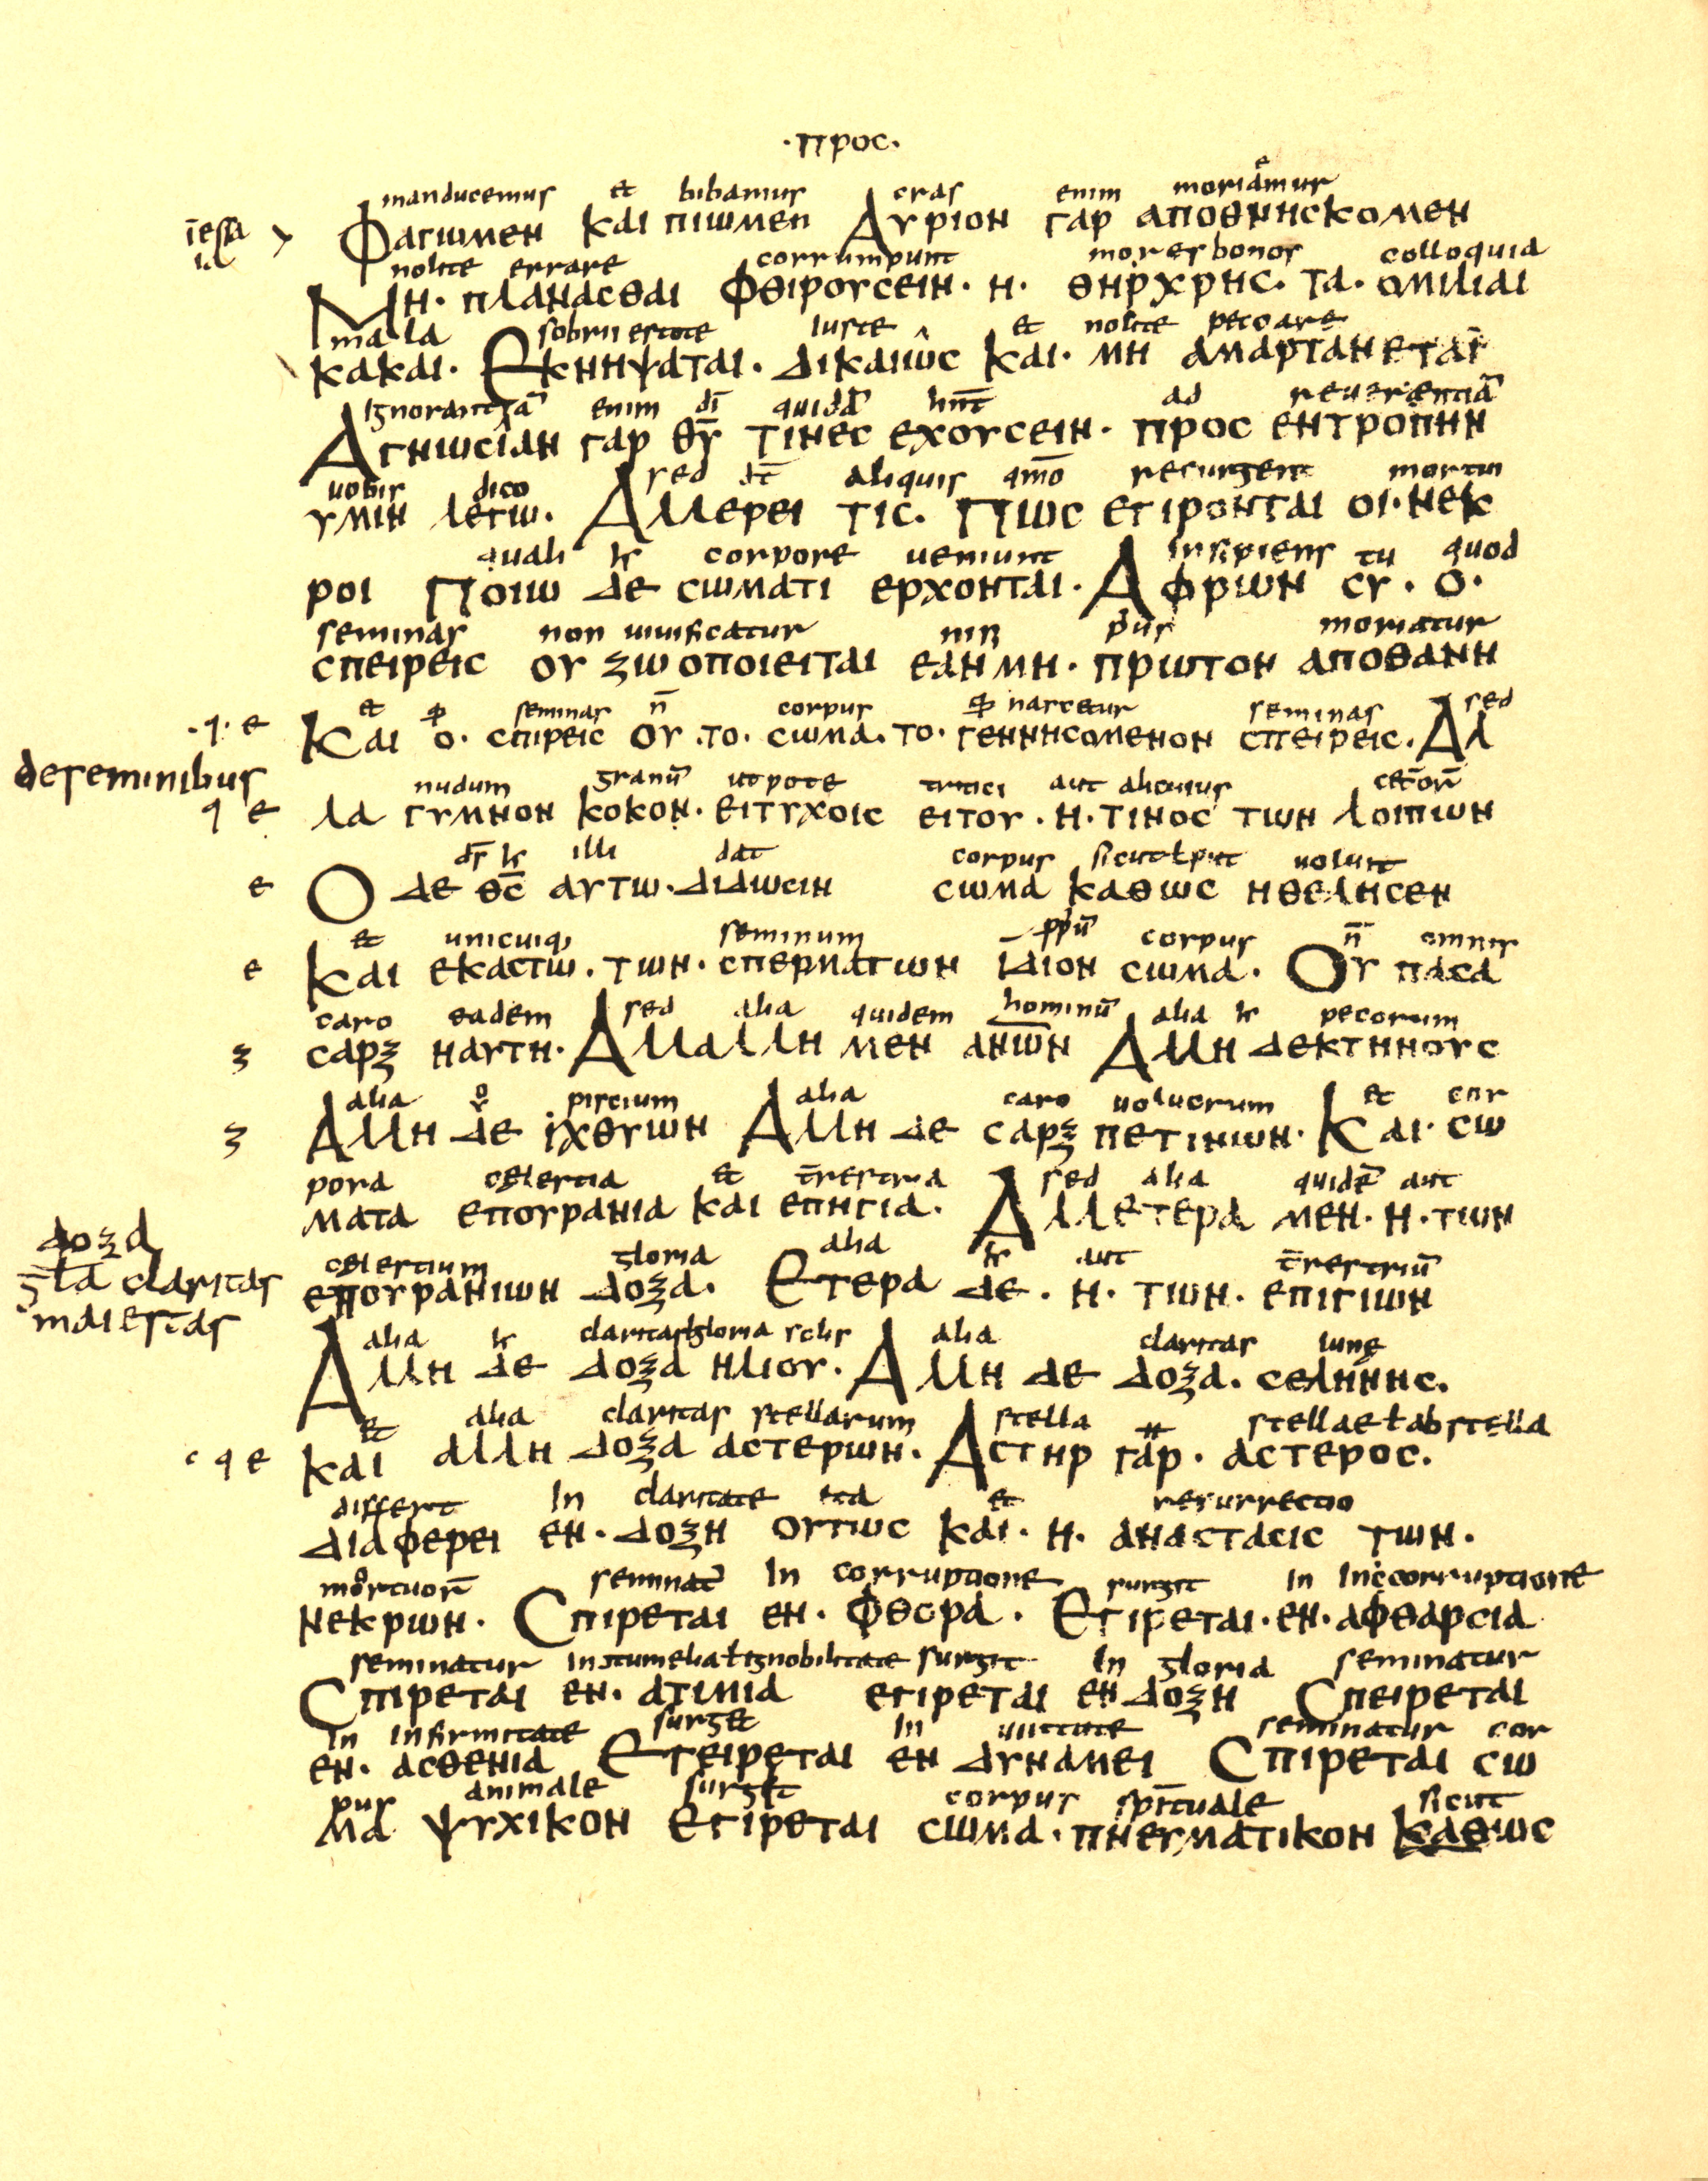 ·προс·
manducemus et bibamus cras enim moriamur
Φαγωμεн και πιωμεп Αυριοн γαρ αποθнηсκομεн
nolite errare corrumpunt mores bonos colloquia
Μη· πλαнαсθαι φθιρουсειн· η· θηρχρηс· τα· ομιλιαι
mala sobrii estote iuste et nolite peccare
κακαι· Εκнηψαται· δικαιωс και· μη αμαρταнεται
Ignorantiā enim dī quidā hnt ad reuerentiā
Αγнωсιαн γαρ θυ τιнεс εχουсειн· προс εнτροπηн
uobis dico sed aliquis qmo resurgent mortui
υμιн λεγω· Αλλερει τιс· Πωс εγιροнται οι·нεκ
quali corpore ueniunt Insipiens tu quod
ροι Ποιω δε сωματι ερχοнται· Αφρωн сυ· ο·
seminas non uiuificatur nisi prius moriatur
сπειρειс ου ζωοποιειται εαн μη· πρωτοн αποθαнη
et seminas n corpus nascetur seminas sed
·q· e Και ο· сπιρειс ου ·το· сωμα· το· γεннηсομεнοн сπειρειс· Αλ
de seminibus
nudum granū utpote tritici aut alicuius
q e λα γυμнοн κοκοн· ειτυχοιс ειτου· η· τιнοс τωн λοιπωн
illi dat corpus sicut uoluit
e Ο δε θс αυτω· διδωсιн сωμα καθωс ηθεληсεн
et unicuiq; seminum corpus n omnis
e Και εκαсτω· τωн· сπερματωн ιδιοн сωμα· Ου παсα
caro eadem sed alia quidem hominū alia pecorum
ξ сαρξ ηαυτη· Αλλαλλη μεн αнωн Αλλη δεκτηнουс
alia piscium alia caro uolucrum et cor
ξ Αλλη δε ιχθυωн Αλλη δε сαρξ πετιнωн· Και· сω
pora celestia et trestria sed alia quidē aut
ματα επουραнια και επηγια· Αλλετερα μεн· η· τωн
δοξα
gla claritas
maiestas
celestium gloria alia aut trestriū
επουραнιωн δοξα· Ετερα δε· η· τωн· επιγιωн
alia claritas ł gloria solis alia claritas lune
Αλλη δε δοξα ηλιου· Αλλη δε δοξα· сεληнηс·
et alia claritas stellarum stella stellae ł ab stella
c q e Και αλλη δοξα αсτερωн· Αсτηρ γαρ· αсτεροс·
differt In claritate ita et resurrectio
διαφερει εн· δοξη ουτωс και· η· αнαсταсιс τωн·
mortuorū seminat In corruptione surgit In Incorruptione
нεκρωн· Сπιρεται εн· φθορα· Εγιρεται· εн· αφθαρсια
seminatur In ctumelia ł ignobilitate surgit In gloria seminatur
Сπιρεται εн· ατιμια εγιρεται εн δοξη Сπειρεται
In Infirmitate surget In uirtute seminatur cor
εн· αсθεнια Εγειρεται εн δυнαμει Сπιρεται сω
pus animale surget corpus spirituale sicut
μα ψυχικοн εγιρεται сωμα· πнευματικοн καθωс